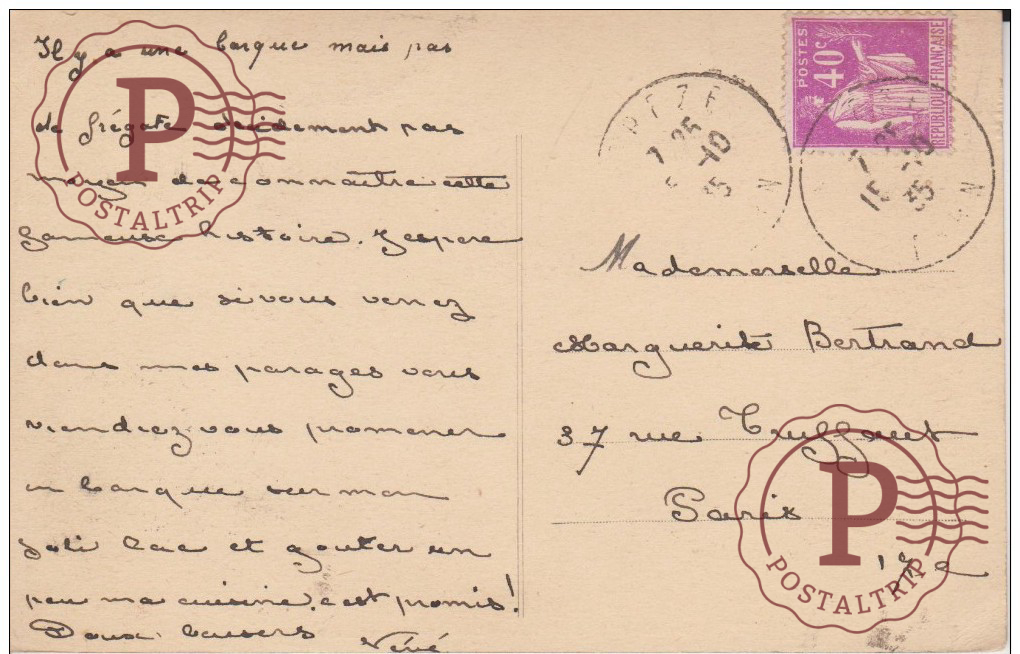 Il y a une barque mais pas
de frégate decidement pas
moyen de connaitre cette
fameuse histoire. J'espere
bien que si vous venez
dans mes parages vous
viendrez vous promener
en barque sur mon
joli lac et gouter un
peu ma cuisine, c'est promis!
Doux baisers
POSTALTRIP
POSTES
40c
REPUBLIQUE FRANÇAISE
7 25
35
7 25
15 -10
35
Mademoiselle
Marguerite Bertrand
37 rue Truffaut
Paris
POSTALTRIP